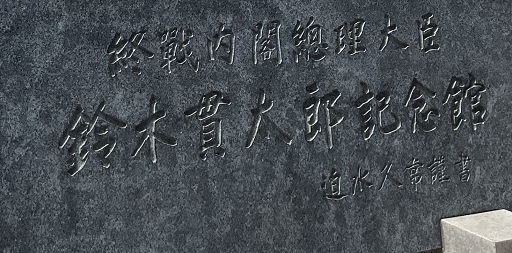 終戰内閣總理大臣
鈴木貫太郎記念館
迫水久常謹書